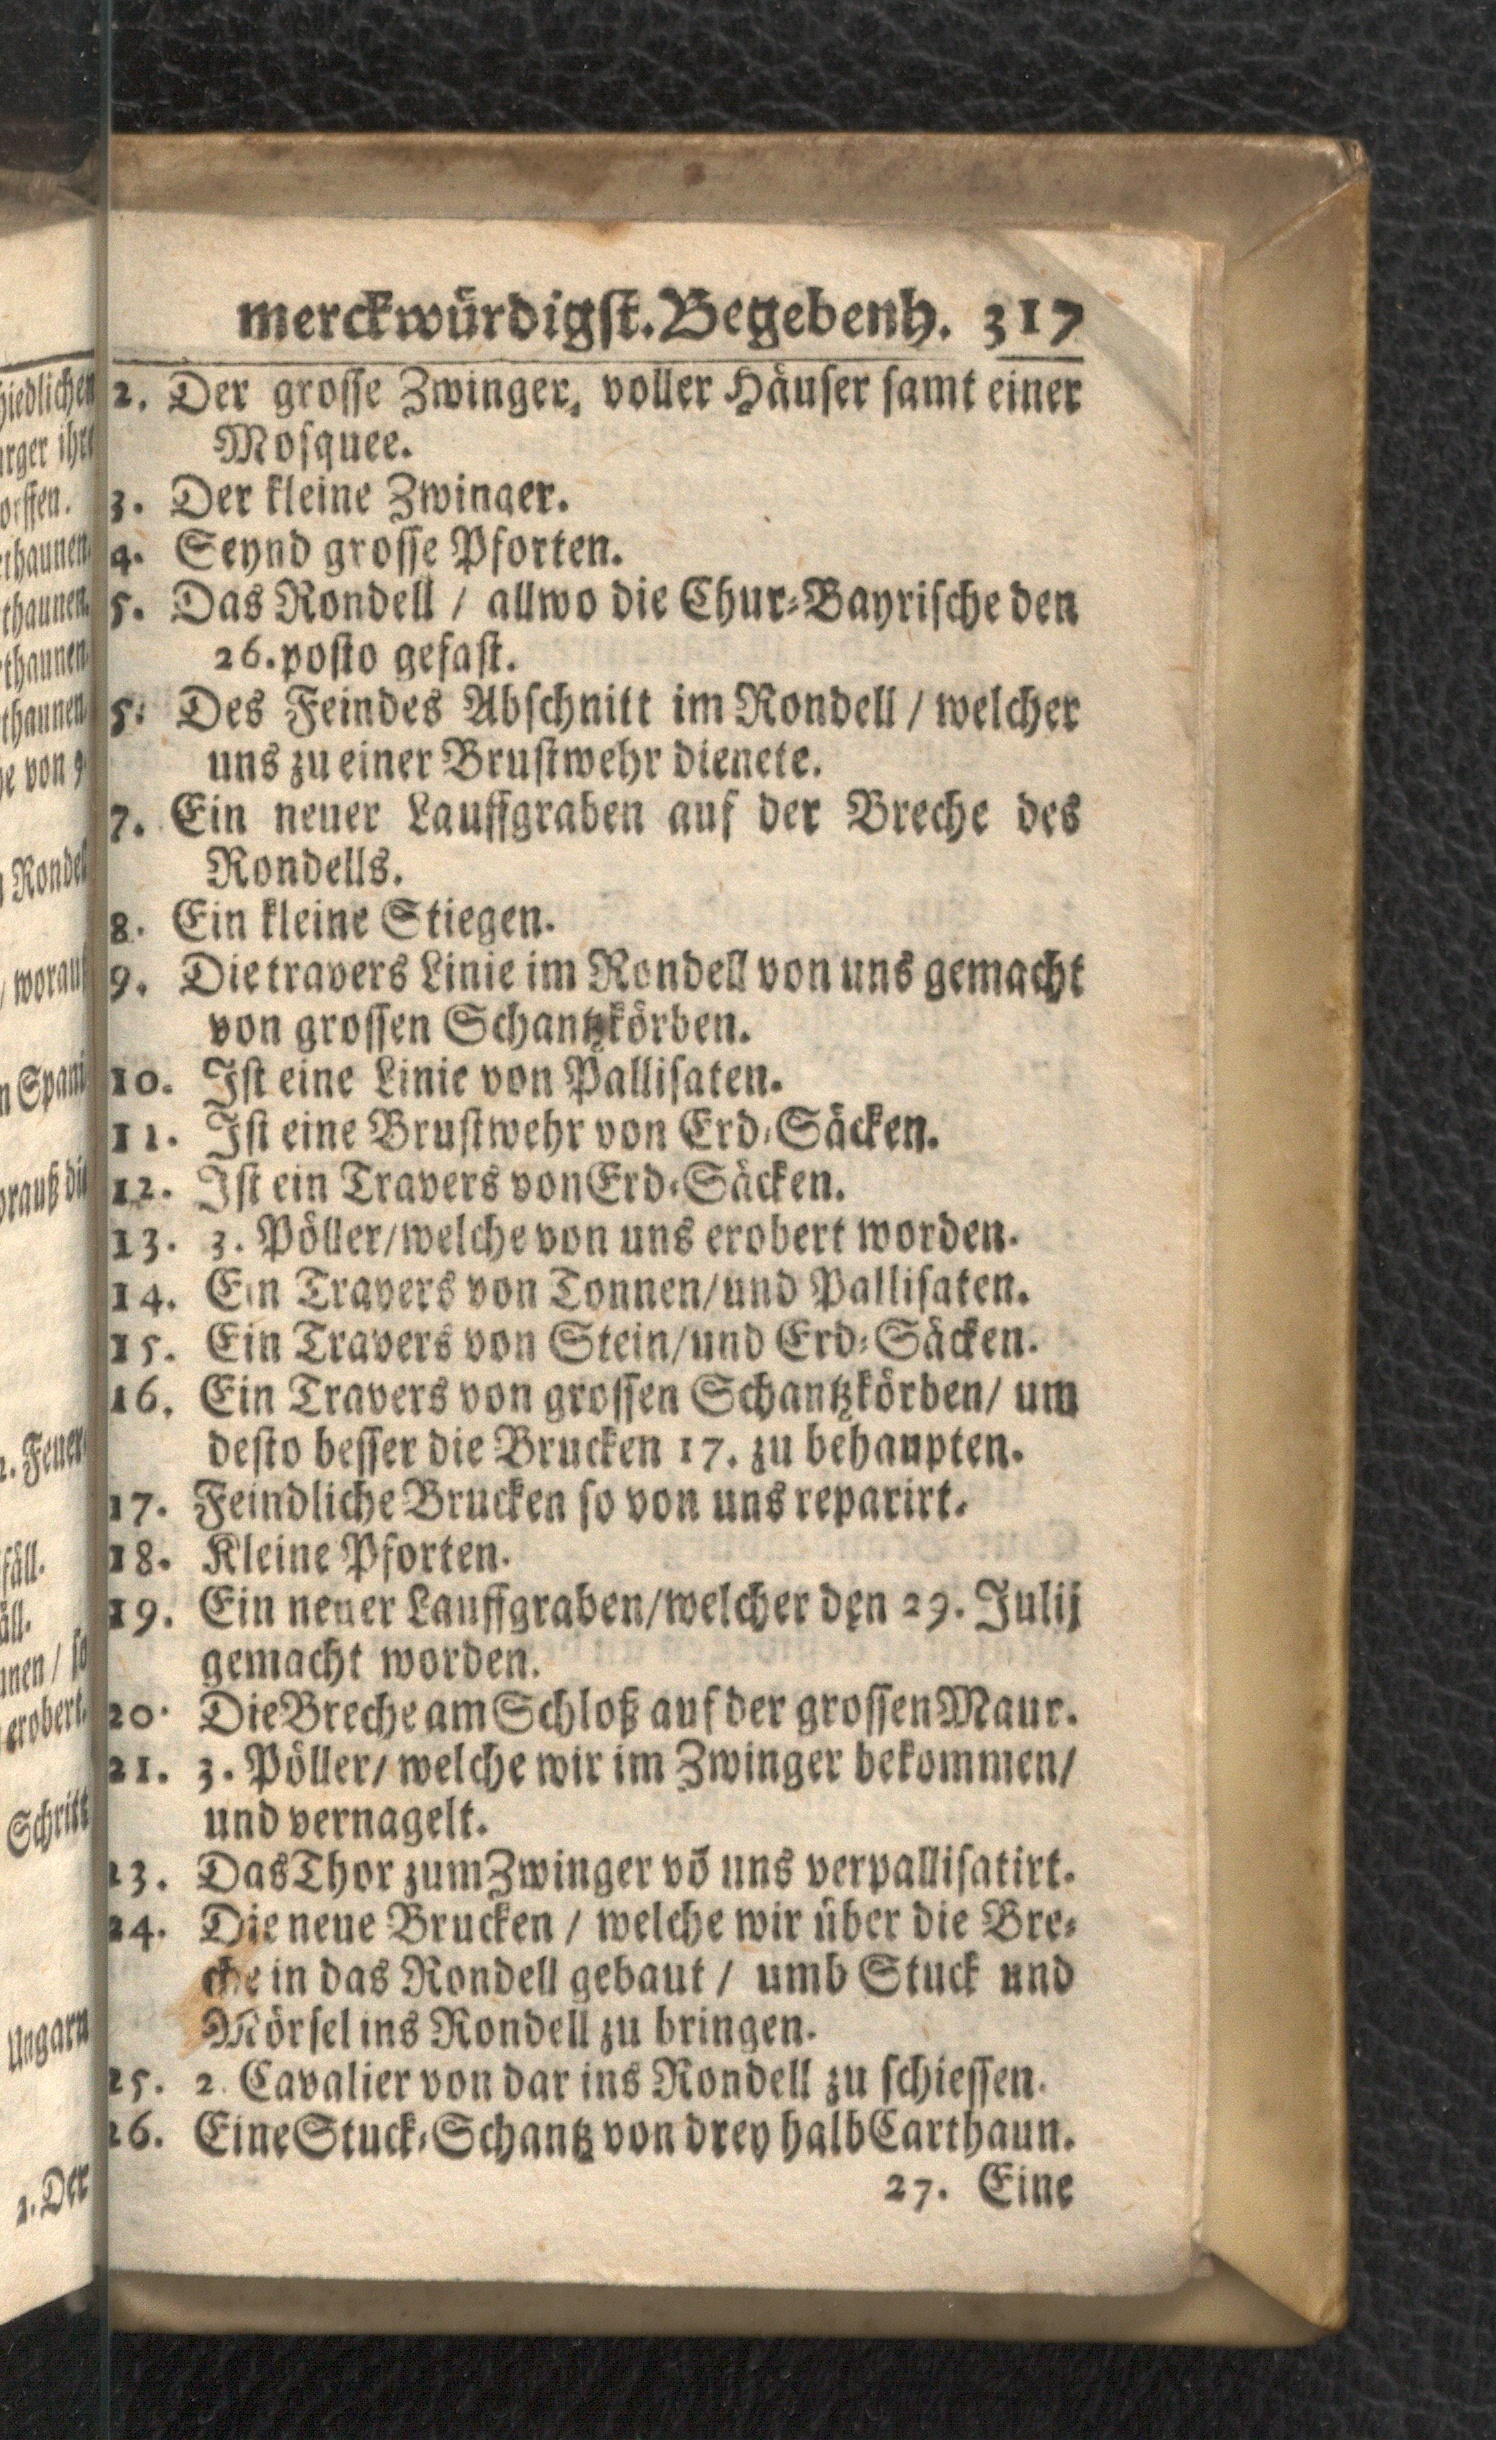 merckwürdigst. Begebenh. 317
2. Der grosse Zwinger, voller Häuser samt einer
Mosquee.
3. Der kleine Zwinger.
4. Seynd grosse Pforten.
5. Das Rondell / allwo die Chur-Bayrische den
26. posto gefast.
5. Des Feindes Abschnitt im Rondell / welcher
uns zu einer Brustwehr dienete.
7. Ein neuer Lauffgraben auf der Breche des
Rondells.
8. Ein kleine Stiegen.
9. Die travers Linie im Rondell von uns gemacht
von grossen Schantzkörben.
10. Ist eine Linie von Pallisaten.
11. Ist eine Brustwehr von Erd-Säcken.
12. Ist ein Travers von Erd-Säcken.
13. 3. Pöller/welche von uns erobert worden.
14. Ein Travers von Tonnen/und Pallisaten.
15. Ein Travers von Stein/und Erd-Säcken.
16. Ein Travers von grossen Schantzkörben/ um
desto besser die Brucken 17. zu behaupten.
17. Feindliche Brucken so von uns reparirt.
18. Kleine Pforten.
19. Ein neuer Lauffgraben/welcher den 29. Julij
gemacht worden.
20. Die Breche am Schloß auf der grossen Maur.
21. 3. Pöller/ welche wir im Zwinger bekommen/
und vernagelt.
23. Das Thor zum Zwinger võ uns verpallisatirt.
24. Die neue Brucken / welche wir über die Bre-
che in das Rondell gebaut / umb Stuck und
Mörsel ins Rondell zu bringen.
25. 2. Cavalier von dar ins Rondell zu schiessen.
26. Eine Stuck-Schantz von drey halb Carthaun.
27. Eine